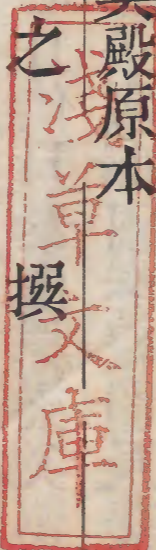 殿原本
之撰
淺草文庫